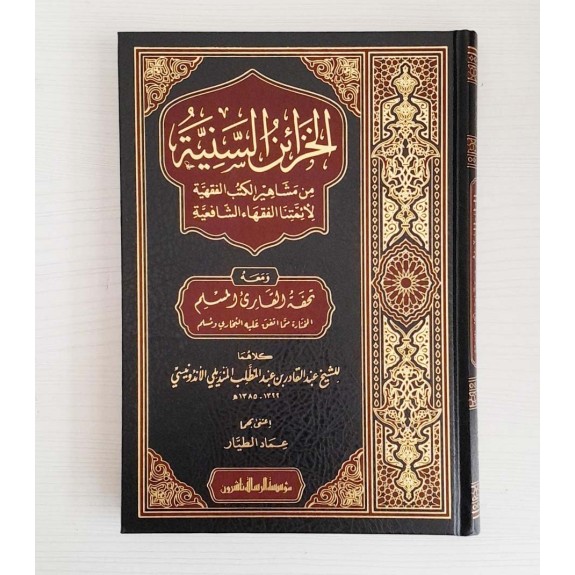 الخزائن السنية
من مشاهير الكتب الفقهية
لأئمتنا الفقهاء الشافعية
ومعه
تحفة القارئ المسلم
المختارة مما اتفق عليه البخاري ومسلم
كلاهما
للشيخ عبد القادر بن عبد المطلب المنديلي الأندونيسي
١٣٢٢ - ١٣٨٥ هـ
اعتنى بهما
عماد الطيار
مؤسسة الرسالة ناشرون